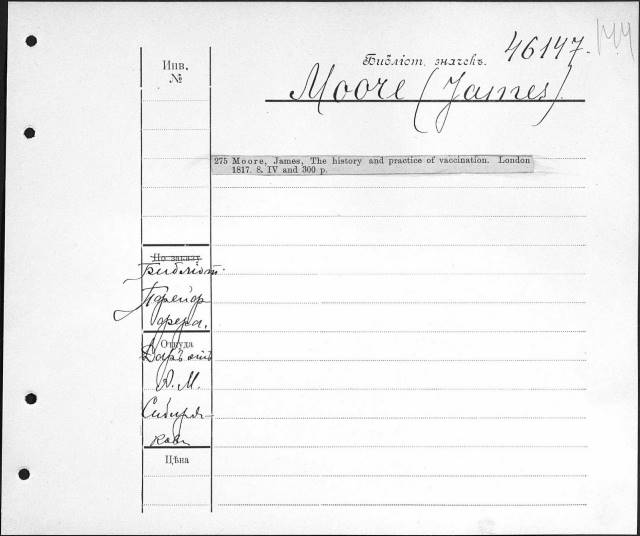 46147. 144
Инв.
№
Библіот. значекъ.
Moore (James).
275 Moore, James, The history and practice of vaccination. London
1817. 8. IV and 300 p.
По заказу
Библіот.
Пфейф
фера.
Откуда
Даръ отъ
А. М.
Сибиря-
кова
Цѣна